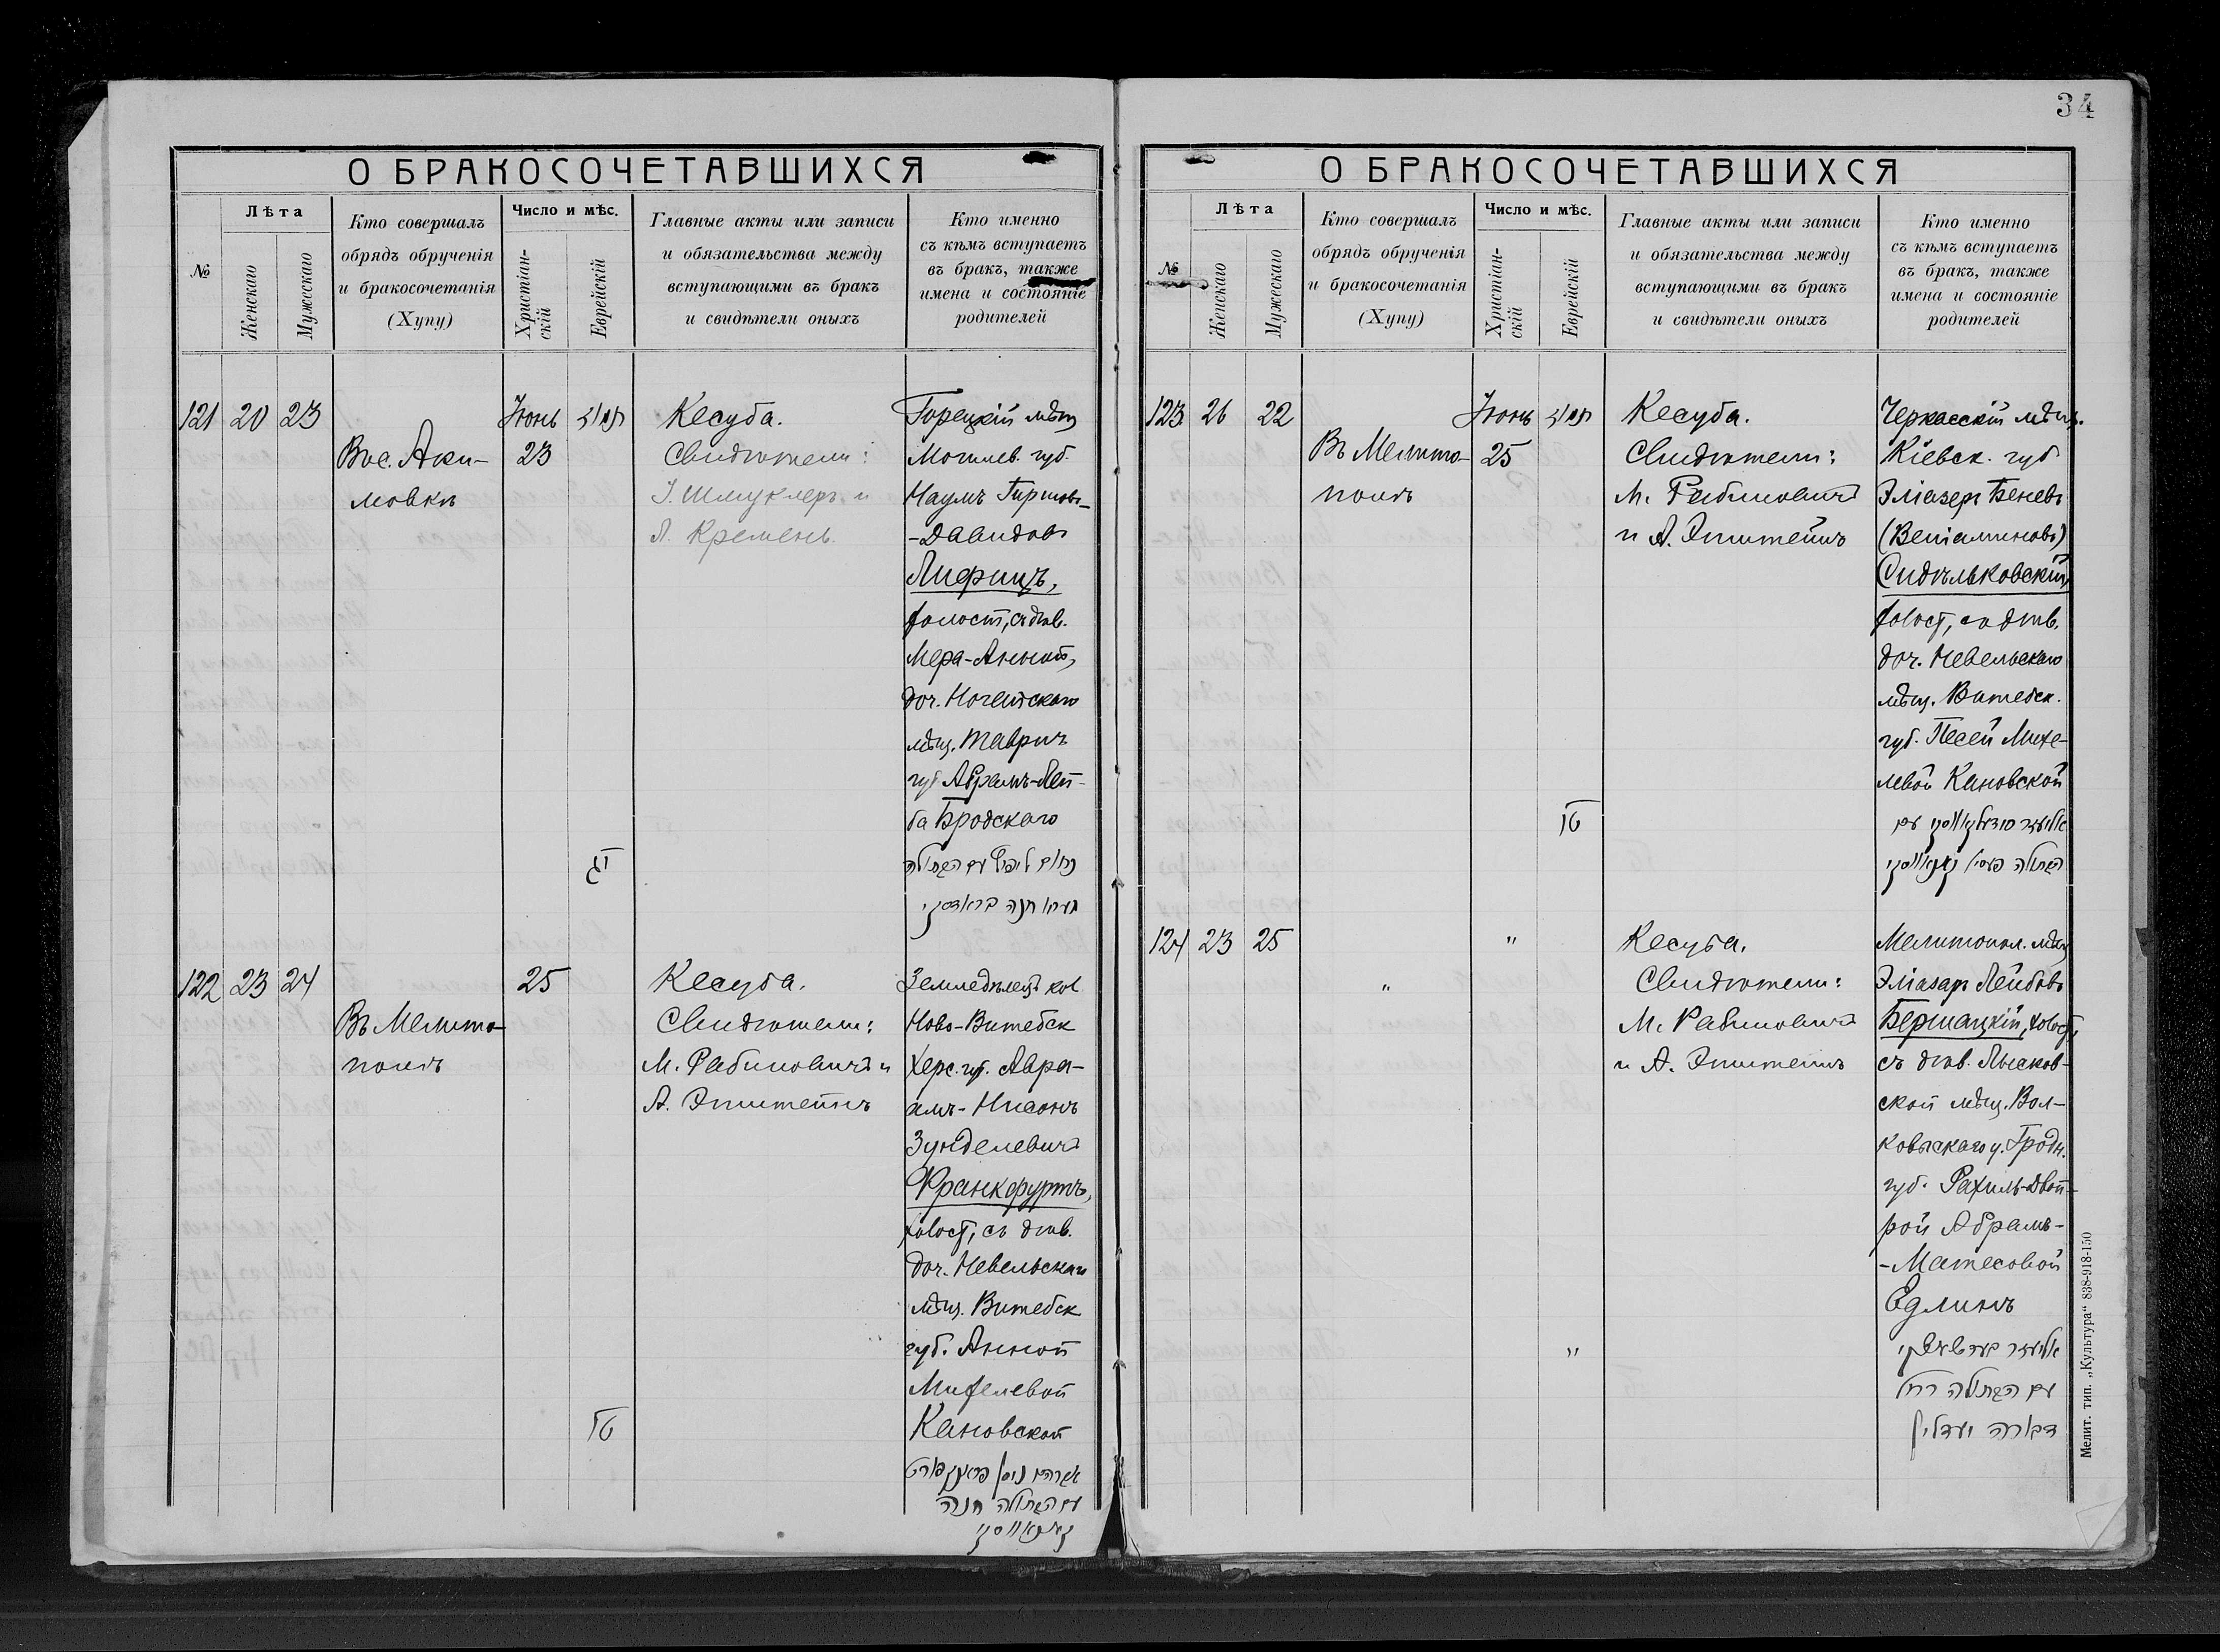 34
О БРАКОСОЧЕТАВШИХСЯ
№
Лѣта
Женскаго
Мужескаго
Кто совершалъ
обрядъ обрученія
и бракосочетанія
(Хупу)
Число и мѣс.
Христіан-
скій
Еврейскій
Главные акты или записи
и обязательства между
вступающими въ бракъ
и свидѣтели оныхъ
Кто именно
съ кѣмъ вступаетъ
въ бракъ, также
имена и состояніе
родителей
121 20 23
В с. Аки-
мовкѣ
Іюнь
23
יג
Кесуба.
Свидѣтели:
І. Шмуклеръ и
Л. Кремень
Горецкій мѣщ
Могилев. губ.
Наумъ Гиршовъ-
-Давидовъ
Лифшицъ,
холост, съ дѣв.
Мера-Анной,
доч. Ногайскаго
мѣщ. Таврич
губ Абрамъ-Лей-
ба Бродскаго
נחום ליפשץ עם הבתולה
מערא חנה בראדסקי
122 23 24
Въ Мелито-
полѣ
25
טו
Кесуба.
Свидѣтели:
М. Рабиновичъ и
А. Эпштейнъ
Земледѣлецъ кол
Ново-Витебск
Херс. губ. Авра-
амъ-Нисонъ
Зунделевичъ
Франкфуртъ,
холост, съ дѣв.
доч. Невельскаго
мѣщ. Витебск
губ. Анной
Михелевой
Кановской
אברהם ניסן פראנקפורט
עם הבתולה חנה
קאנאווסקי
О БРАКОСОЧЕТАВШИХСЯ
№
Лѣта
Женскаго
Мужескаго
Кто совершалъ
обрядъ обрученія
и бракосочетанія
(Хупу)
Число и мѣс.
Христіан-
скій
Еврейскій
Главные акты или записи
и обязательства между
вступающими въ бракъ
и свидѣтели оныхъ
Кто именно
съ кѣмъ вступаетъ
въ бракъ, также
имена и состояніе
родителей
123 26 22
Въ Мелито-
полѣ
Іюнь
25
טו
Кесуба.
Свидѣтели:
М. Рабиновичъ
и А. Эпштейнъ
Черкасскій мѣщ.
Кіевск. губ
Эліазеръ Беневъ
(Веніаминовъ)
Сидѣльковскій,
холост, съ дѣв.
доч. Невельскаго
мѣщ. Витебск.
губ. Песей Михе-
левой Кановской
אליעזר סידעלקאווסקי עם
הבתולה פעסי קאנאווסקי
124 23 25
"
"
"
Кесуба.
Свидѣтели:
М. Рабиновичъ
и А. Эпштейнъ
Мелитопол. мѣщ
Эліазаръ Лейбовъ
Бершацкій, холост,
съ дѣв. Лысков-
ской мѣщ. Вол-
ковыскаго у. Гродн.
губ. Рахиль-Двой-
рой Абрамъ-
-Матесовой
Едлинъ
אליעזר בערשאצקי
עם הבתולה רחל
דבורה יעדלין
Мелит. тип. „Культура" 838-918-150